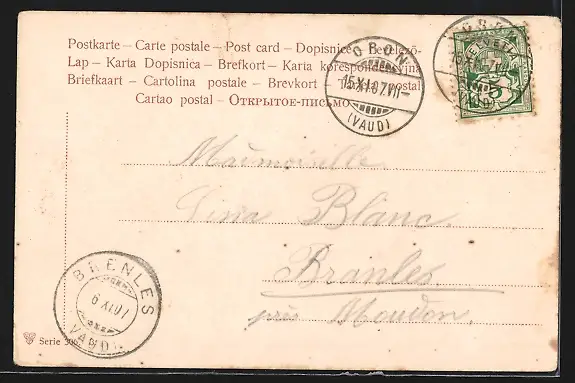 Postkarte – Carte postale – Post card – Dopisnice – Levelező-
Lap – Karta Dopisnica – Brefkort – Karta korespondencyjna
Briefkaart – Cartolina postale – Brevkort – postal
Cartao postal – Открытое-письмо
ORON
(VAUD)
HELVETIA
5
Blanc.
Branles.
près Moudon.
BRENLES
6 XI 07
VAUD
Serie